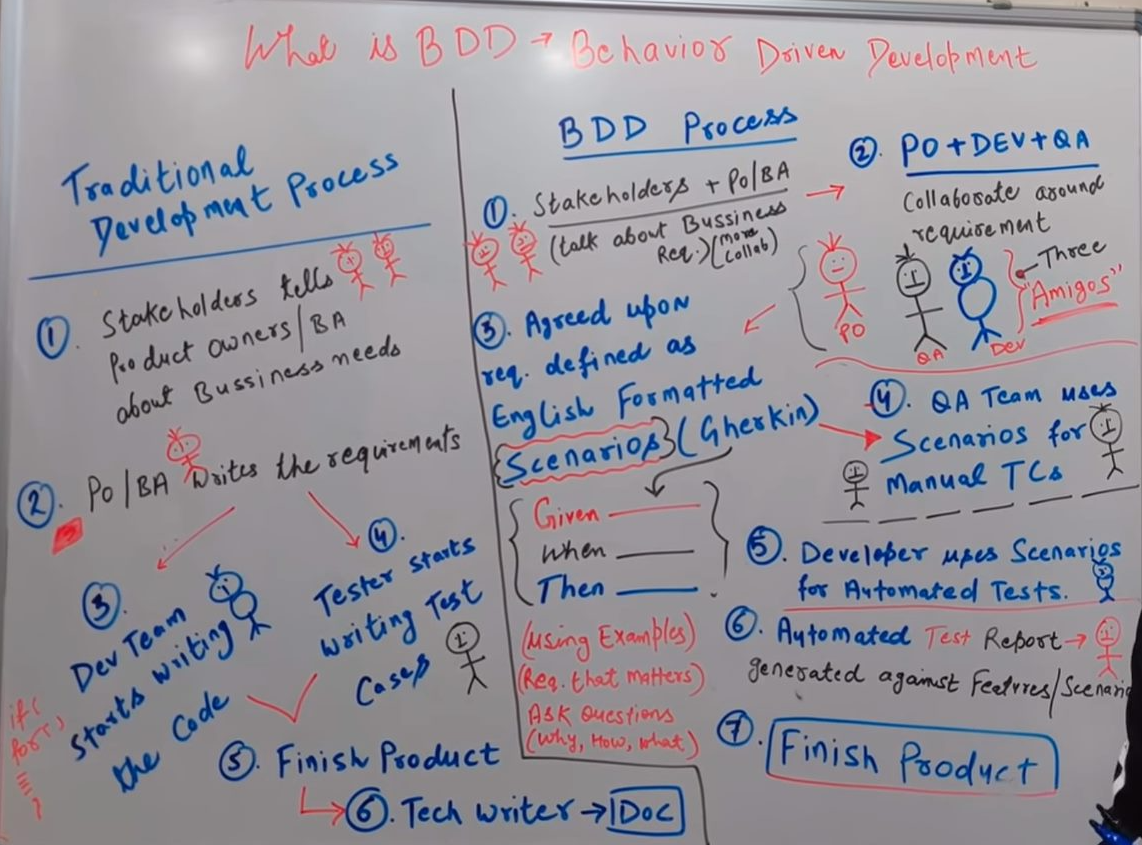 What is BDD → Behavior Driven Development
Traditional
Development Process
①. Stakeholders tells
Product owners/BA
about Bussiness needs
②. PO/BA Writes the requirements
③.
Dev Team
starts writing
the Code
④.
Tester starts
writing Test
Cases
⑤. Finish Product
⑥. Tech writer → Doc
BDD Process
①. Stakeholders + PO/BA
(talk about Bussiness
Req.) (more
collab)
②. PO+DEV+QA
Collaborate around
requirement
Three
"Amigos"
PO
QA
Dev
③. Agreed upon
req. defined as
English Formatted
{Scenarios} (Gherkin)
Given
When
Then
(using Examples)
(Req. that matters)
Ask Questions
(Why, How, what)
④. QA Team uses
Scenarios for
Manual TCs
⑤. Developer uses Scenarios
for Automated Tests.
⑥. Automated Test Report →
generated against Features/Scenario
⑦. Finish Product